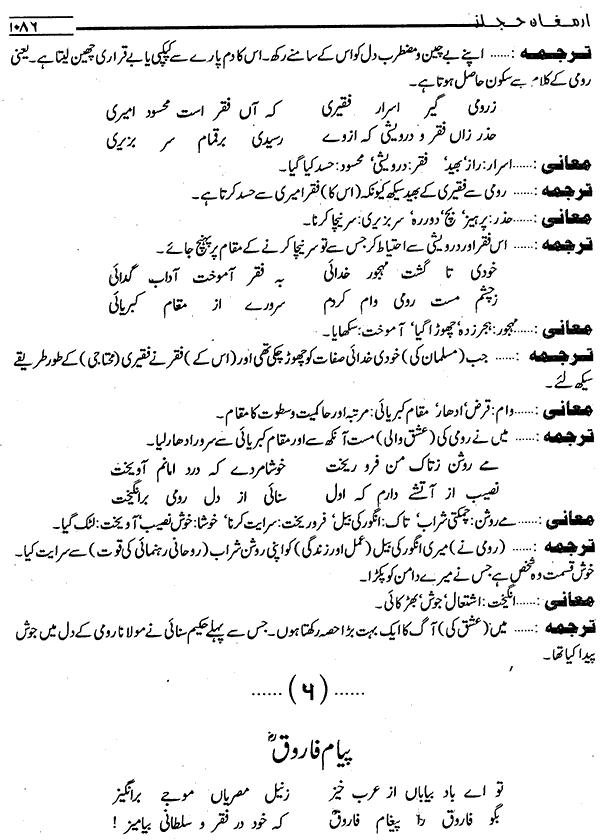 ارمغان حجاز
۱۰۸۶
ترجمہ :...... اپنے بے چین و مضطرب دل کو اس کے سامنے رکھ۔ اس کا دم پارے سے کپکپی یا بے قراری چھین لیتا ہے۔ یعنی
رومی کے کلام سے سکون حاصل ہوتا ہے۔
زرومی گیر اسرار فقیری    کہ آں فقر است محسود امیری
حذر زاں فقر و درویشی کہ ازوے    رسیدی برقمام سر بزیری
معانی :......اسرار: راز' بھید' فقر: درویشی' محسود: حسد کیا گیا۔
ترجمہ :...... رومی سے فقیری کے بھید سیکھ کیونکہ (اس کا) فقر امیری سے حسد کرتا ہے۔
معانی :......حذر: پرہیز' بچ' دور رہ' سربزیری: سر نیچا کرنا۔
ترجمہ :...... اس فقر اور درویشی سے احتیاط کر جس سے تو سر نیچا کرنے کے مقام پر پہنچ جائے۔
خودی تا گشت مہجور خدائی    بہ فقر آموخت آداب گدائی
زچشم مست رومی وام کردم    سرورے از مقام کبریائی
معانی :......مہجور: ہجر زدہ' چھوڑا گیا' آموخت: سکھایا۔
ترجمہ :...... جب (مسلمان کی) خودی خدائی صفات کو چھوڑ چکی تھی اور (اس کے) فقر نے فقیری (محتاجی) کے طور طریقے
سیکھ لئے۔
معانی :......وام: قرض' ادھار' مقام کبریائی: مرتبہ اور حاکمیت و سطوت کا مقام۔
ترجمہ :...... میں نے رومی کی (عشق والی) مست آنکھ سے اور مقام کبریائی سے سرور ادھار لیا۔
مے روشن زتاک من فرو ریخت    خوشا مردے کہ درد امانم آویخت
نصیب از آتشے دارم کہ اول    سنائی از دل رومی برانگیخت
معانی :......مے روشن: چمکتی شراب' تاک: انگور کی بیل' فرو ریخت: سرایت کرنا' خوشا: خوش نصیب' آویخت: لٹک گیا۔
ترجمہ :...... (رومی نے) میری انگور کی بیل (عمل اور زندگی) کو اپنی روشن شراب (روحانی رہنمائی کی قوت) سے سرایت کیا۔
خوش قسمت وہ شخص ہے جس نے میرے دامن کو پکڑا۔
معانی :......انگیخت: اشتعال' جوش' بھڑکائی۔
ترجمہ :...... میں (عشق کی) آگ کا ایک بہت بڑا حصہ رکھتا ہوں۔ جس سے پہلے حکیم سنائی نے مولانا رومی کے دل میں جوش
پیدا کیا تھا۔
...... (۶) ......
پیام فاروقؓ
تو اے باد بیاباں از عرب خیز    زنیل مصریاں موجے برانگیز
بگو فاروق را پیغام فاروقؓ    کہ خود در فقر و سلطانی بیامیز !